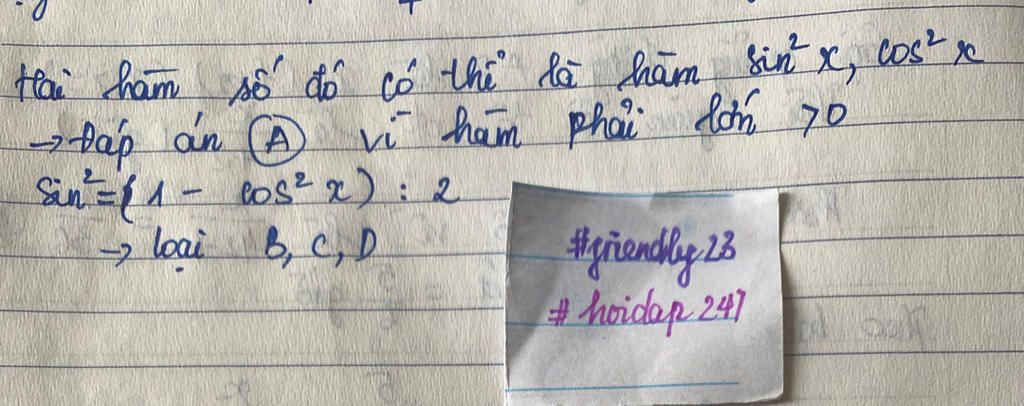 Hai hàm số đó có thể là hàm sin² x, cos² x
→ Đáp án Ⓐ vì hàm phải lớn >0
sin² = (1 - cos² x) : 2
→ loại B, C, D
#friendly23
# hoidap247